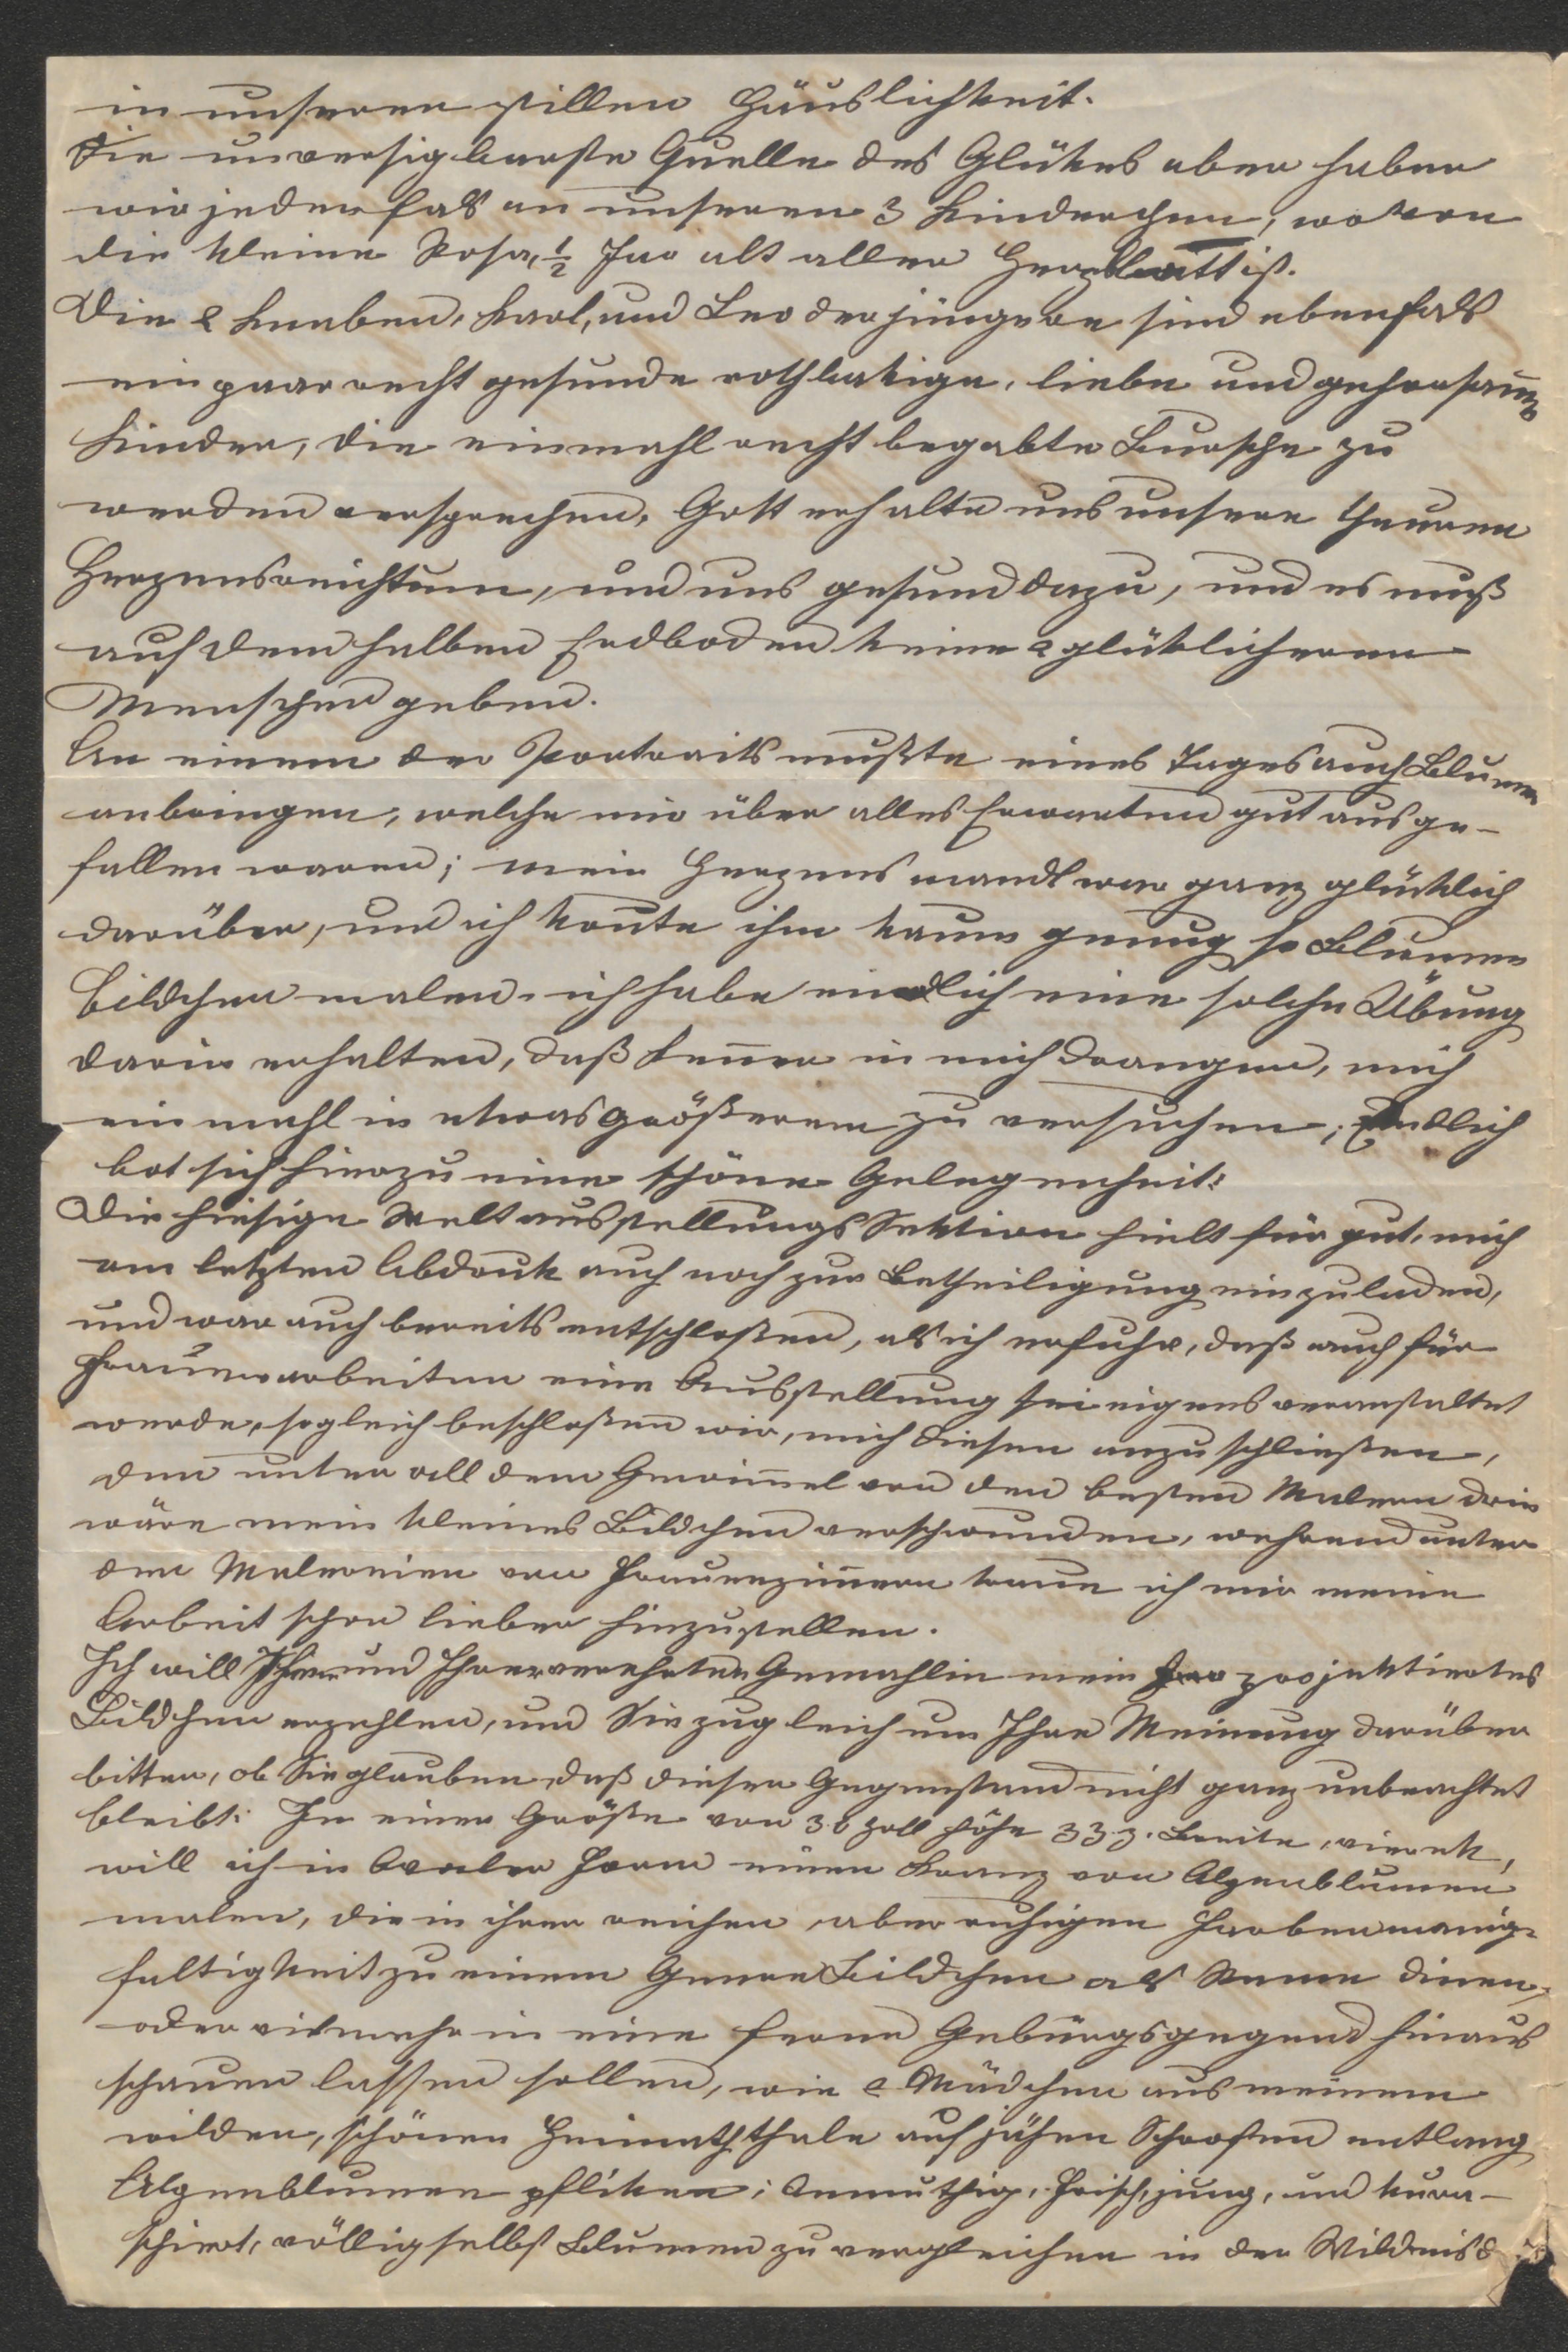 in unserer stillen Häuslichkeit.
Die unversigbarste Quelle des Glükes aber haben
wir jedenfals an unseren 3 Kinderchen, wovon
die kleine Rosa, ½ Jar alt aller Herzblatt ist.
Die 2 Knaben, Karl, und Leo der jüngere sind ebenfals
ein paar recht gesunde rothbakige, liebe und gehorsame
Kinder, die einmahl recht begabte Bursche zu
werden versprechen, Gott erhalte uns unsere theuren
Herzensreichtum, und uns gesund dazu, und es muß
auf dem halben Erdboden keine 2 glüklicheren
Menschen geben.
An einem der Portraits mußte eines Tages auch Blumen
anbringen, welche mir über alles Erwarten gut ausge-
fallen waren; mein Herzensmandl war ganz glücklich
darüber, und ich konte ihm kaum genug so Blumen
bildchen malen, ich habe endlich eine solche Übung
darin erhalten, daß Kenner in mich drangen, mich
einmahl in etwas größerem zu versuchen; Endlich
bot sich hierzu eine schöne Gelegenheit:
Die hiesige Weltausstellungs Sektion hielt für gut, mich
am letzten Abdruk auch noch zur Betheiligung einzuladen,
und war auch bereits entschloßen, als ich erfuhr, daß auch für
Frauenarbeiten eine Ausstellung sei eigens veranstaltet
werde, sogleich beschloßen wir, mich diesen anzuschließen,
den unter all dem Gewimel von den besten Malern drin
wäre mein kleines Bildchen verschwunden, wehrend unter
den Malereien von Frauenzimern traue ich mir meine
Arbeit schon lieber hinzustellen.
Ich will Ihnen und Ihrer verehrten Gemahlin mein projektiertes
Bildchen erzehlen, und Sie zugleich um Ihre Meinung darüber
bitten, ob Sie glauben, daß dieser Gegenstand nicht ganz unbeachtet
bleibt: In einer Größe von 36 Zoll Höhe 33 z. Breite, vierek,
will ich in Ovaler Form einen Kranz von Alpenblumen
malen, die in ihrer reichen, aber ruhigen Farbenmanig-
faltigkeit zu einem Genre Bildchen als Rame dinen,
oder vielmehr in eine ferne Gebürgsgegend hinaus
schauen lassen sollen, wie 2 Mädchen aus meinem
wilden, schönen Heimaththale auf jähen Schrofen entlang
Alpenblumen pflüken; Anmuthig, frisch, jung, und kura-
schiert, völlig selbst Blumen zu vergleichen in der Wildniss